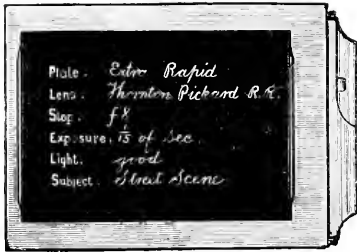 Plate. Extra Rapid
Lens. Thornton Pickard R.R.
Stop. f 8
Exposure. 1/15 of Sec.
Light. good
Subject. Street Scene